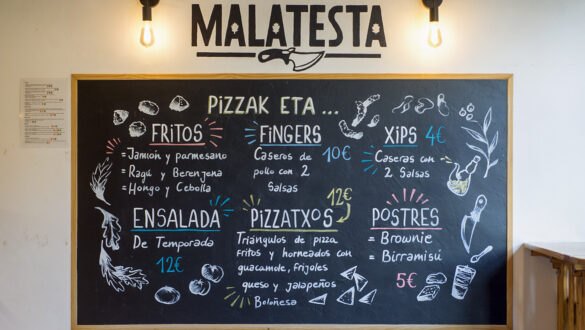 MALATESTA
PiZZAK ETA ...
FRITOS
= Jamión y parmesano
= Ragú y Berenjena
= Hongo y Cebolla
FiNGERS
Caseros de
pollo con 2
Salsas
10€
XiPS 4€
Caseras con
2 Salsas
ENSALADA
De Temporada
12€
PiZZATXOS
12€
Triángulos de pizza
fritos y horneados con
guacamole, Frijoles
queso y jalapeños
Boloñesa
POSTRES
= Brownie
= Birramisú
5€